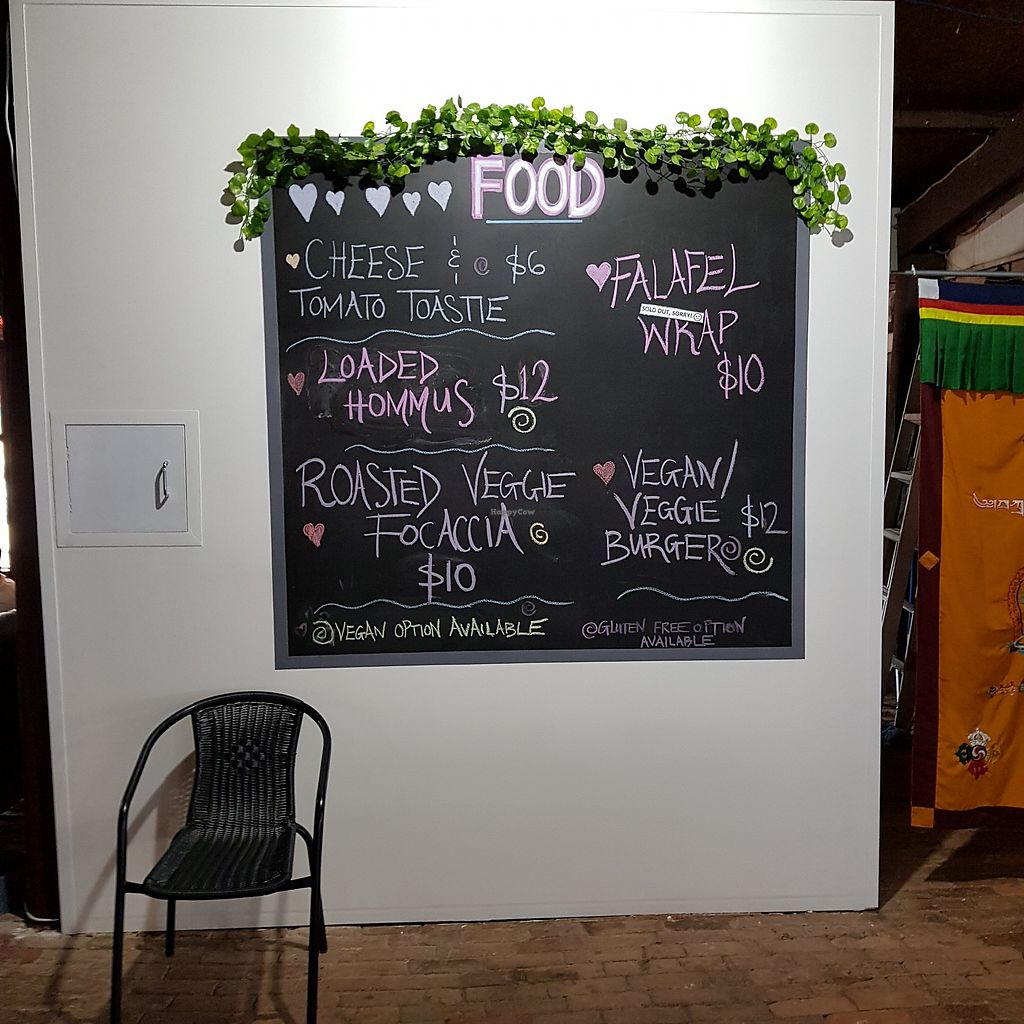 FOOD
CHEESE & @ $6
TOMATO TOASTIE
LOADED
HOMMUS $12
ROASTED VEGGIE
FOCACCIA
$10
@VEGAN OPTION AVAILABLE
FALAFEL
SOLD OUT, SORRY! ☺
WRAP
$10
VEGAN/
VEGGIE $12
BURGER@
@GLUTEN FREE OPTION
AVAILABLE
HappyCow